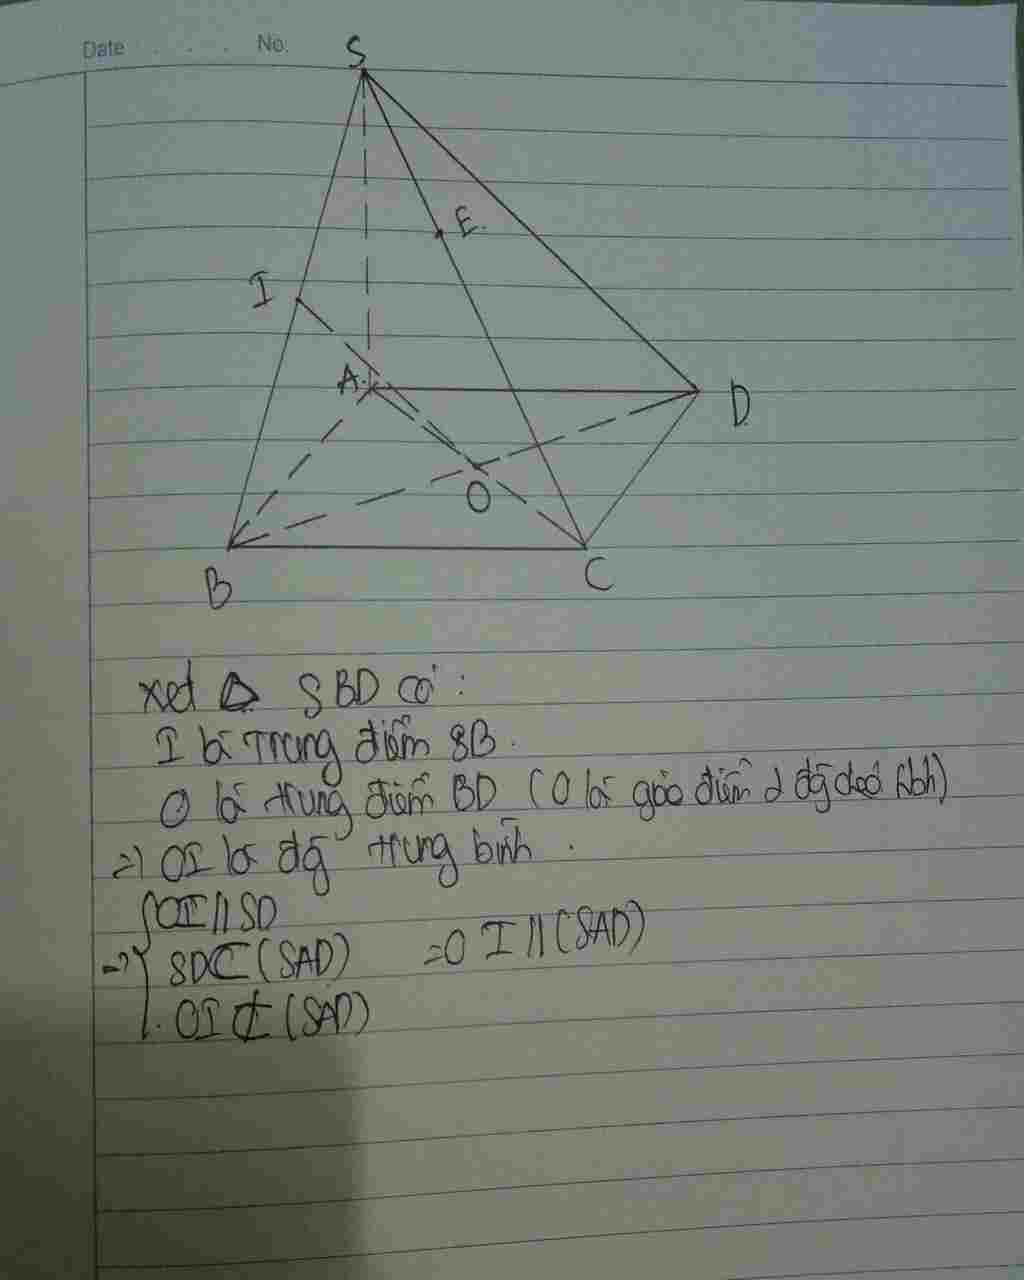 Date . . . No.
S
E.
I
A
D
O
B
C
xet △ SBD có :
I là Trung điểm SB .
O là trung điểm BD ( O là giao điểm 2 đg chéo hbh)
=> OI là đg trung bình .
OI // SD
=> SD ⊂ (SAD) => OI // (SAD)
OI ⊄ (SAD)